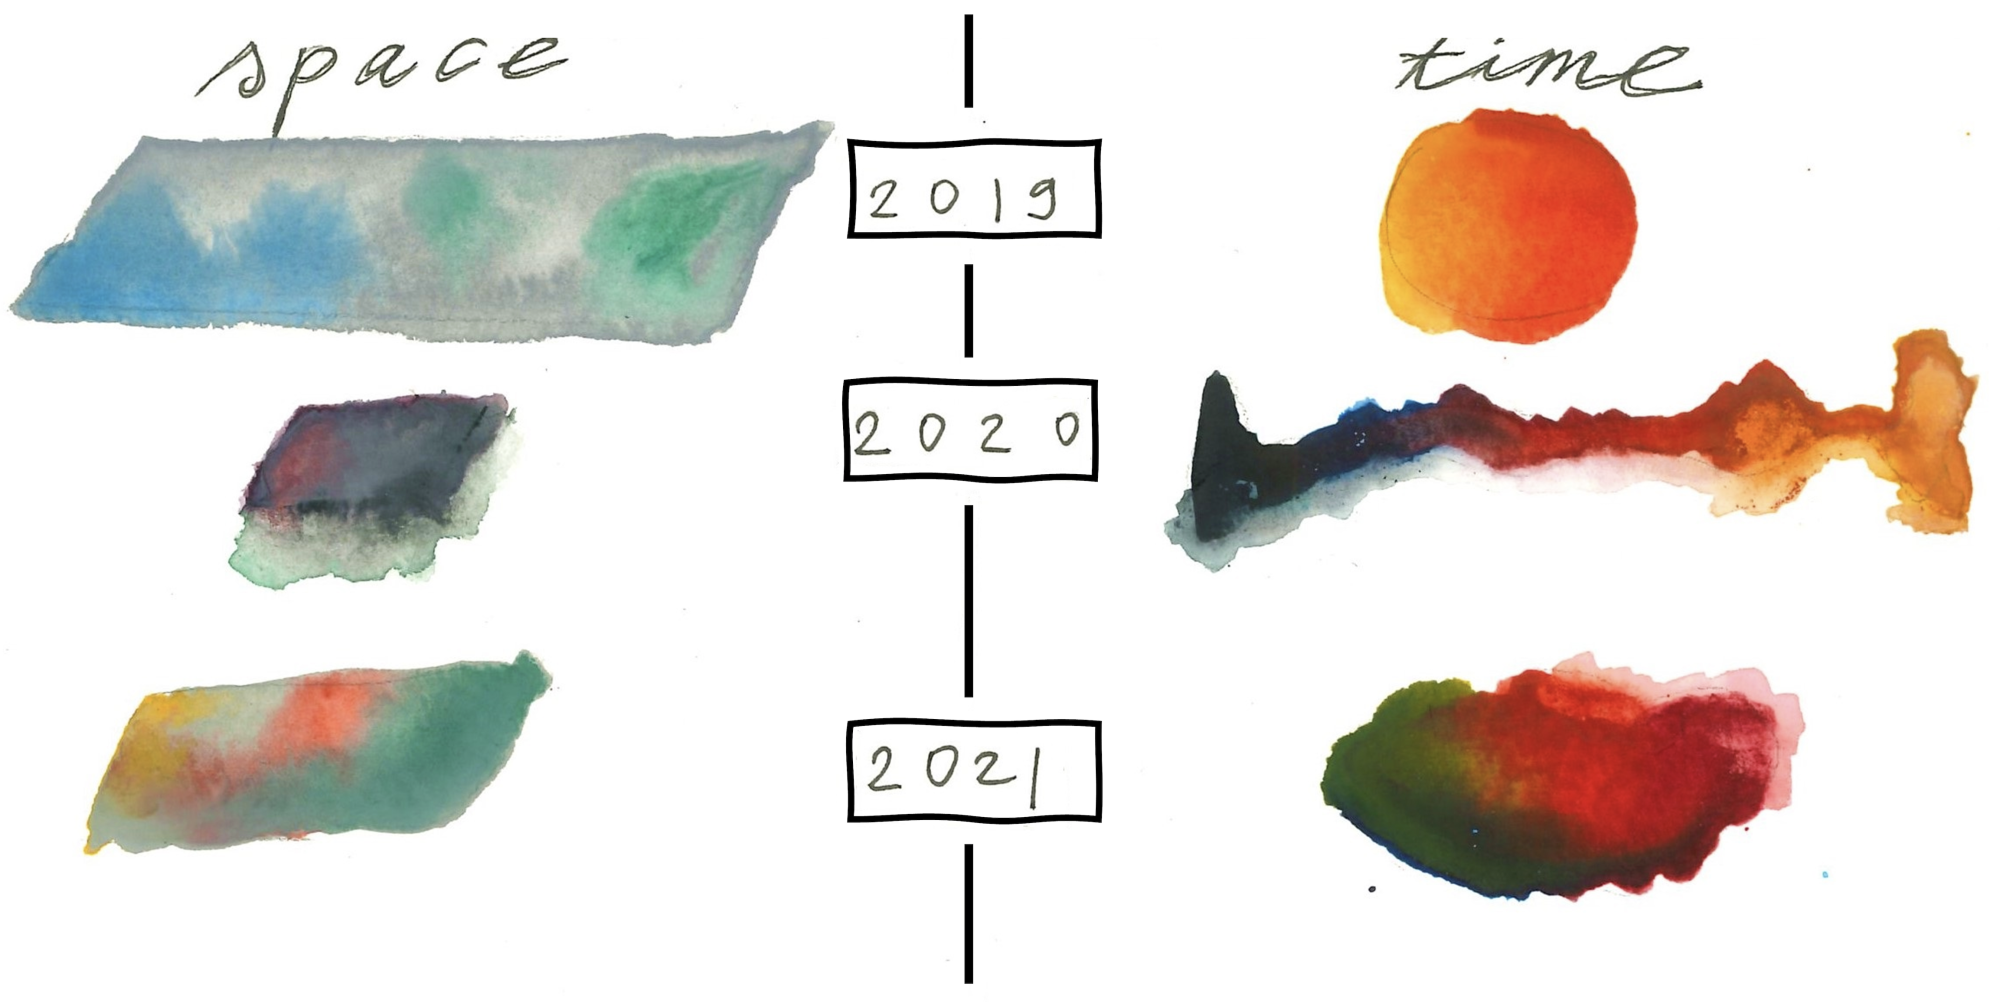 space
time
2019
2020
2021